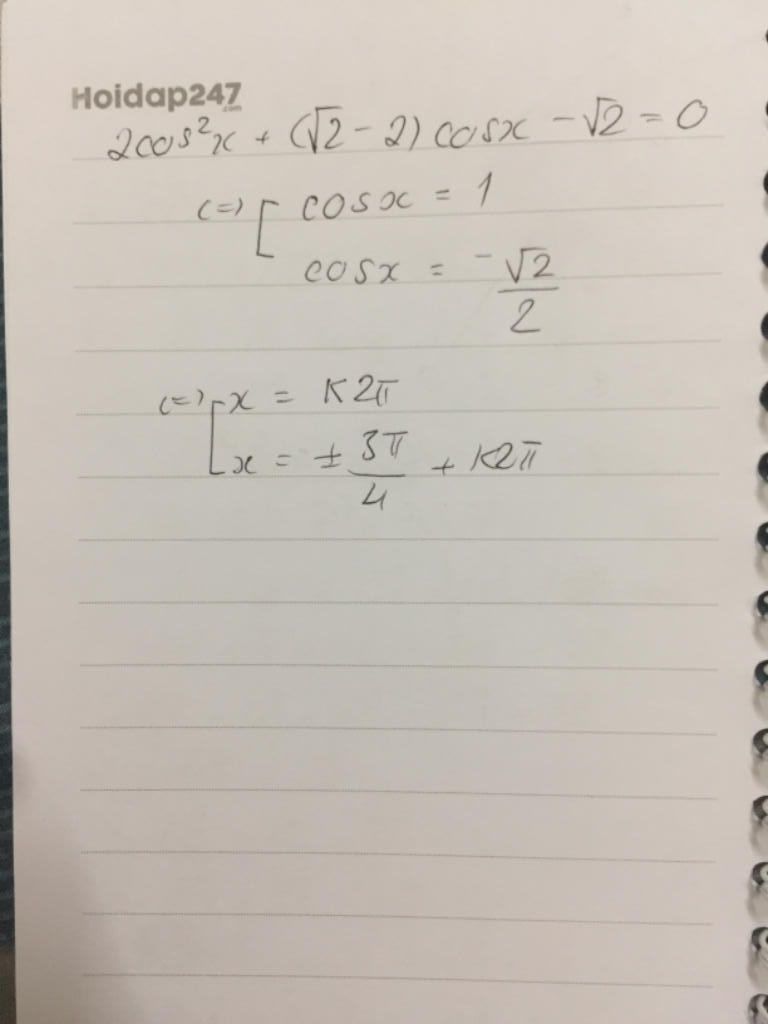 Hoidap247
.com
2cos²x + (√2 - 2) cosx - √2 = 0
(=) [ cosx = 1
cosx = -√2/2
(=) [ x = k2π
x = ± 3π/4 + k2π